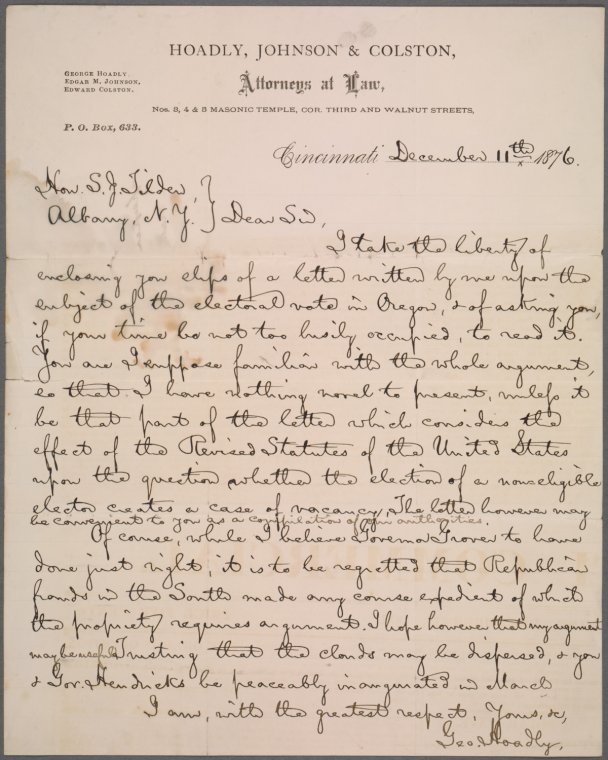 HOADLY, JOHNSON & COLSTON,
GEORGE HOADLY.
EDGAR M. JOHNSON.
EDWARD COLSTON.
Attorneys at Law,
Nos. 3, 4 & 5 MASONIC TEMPLE, COR. THIRD AND WALNUT STREETS,
P. O. Box, 633.
Cincinnati December 11th 1876.
Hon. S. J. Tilden,
Albany, N. Y. } Dear Sir,
I take the liberty of
enclosing you clips of a letter written by me upon the
subject of the electoral vote in Oregon, & of asking you,
if your time be not too busily occupied, to read it.
You are I suppose familiar with the whole argument,
so that I have nothing novel to present, unless it
be that part of the letter which considers the
effect of the Revised Statutes of the United States
upon the question whether the election of a non-eligible
elector creates a case of vacancy. The letter however may
be convenient to you as a compilation of authorities.
Of course, while I believe Governor Grover to have
done just right, it is to be regretted that Republican
frauds in the South made any course expedient of which
the propriety requires argument. I hope however that my argument
may be useful. Trusting that the clouds may be dispersed, & you
& Gov. Hendricks be peaceably inaugurated in March
I am, with the greatest respect, Yours, &c,
Geo. Hoadly.